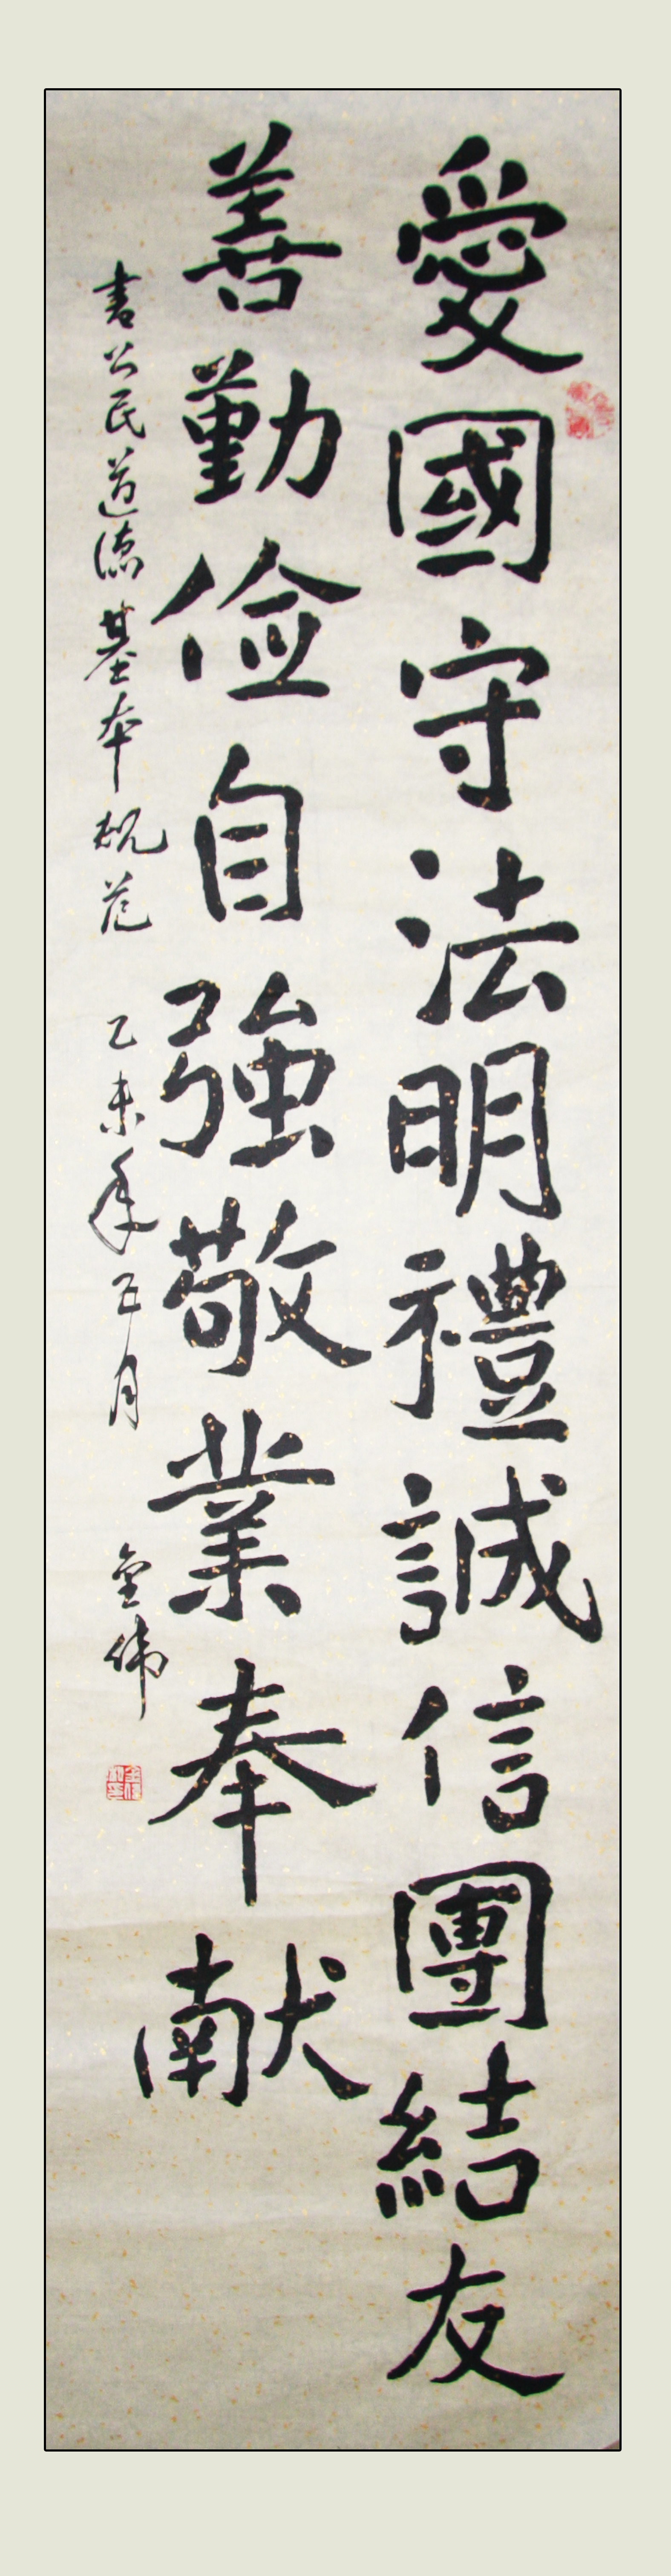 愛國守法明禮誠信團結友
善勤俭自強敬業奉献
書公民道德基本规范 乙未年 月 金伟